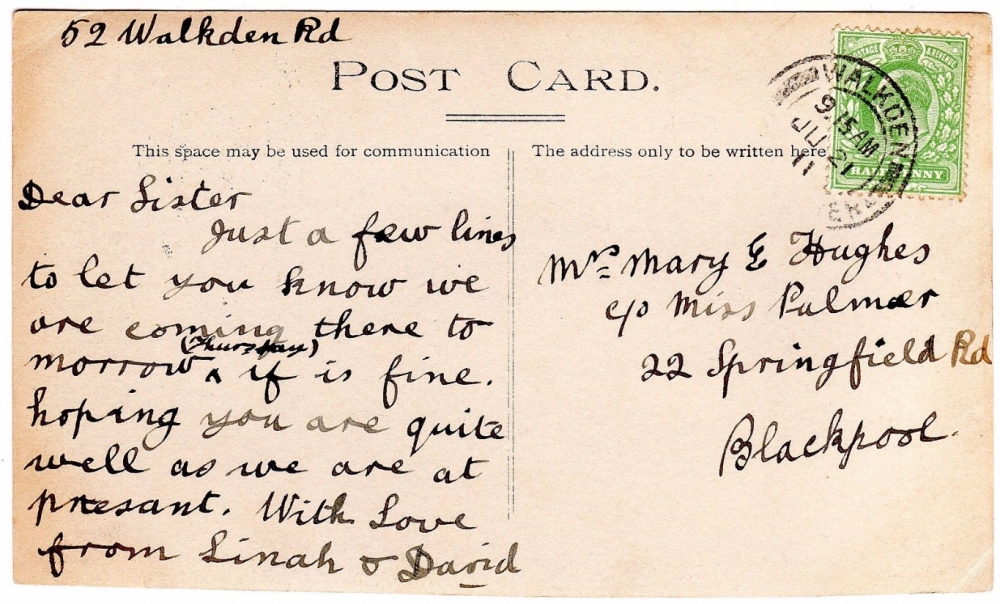 52 Walkden Rd
POST CARD.
This space may be used for communication
The address only to be written here
Dear Sister
Just a few lines
to let you know we
are coming there to
morrow (Thursday) if is fine.
hoping you are quite
well as we are at
presant. With Love
from Linah & David
Mrs Mary E Hughes
c/o Miss Palmer
22 Springfield Rd
Blackpool.
POSTAGE & REVENUE
HALFPENNY
WALKDEN
9.15 AM
JU 21
11